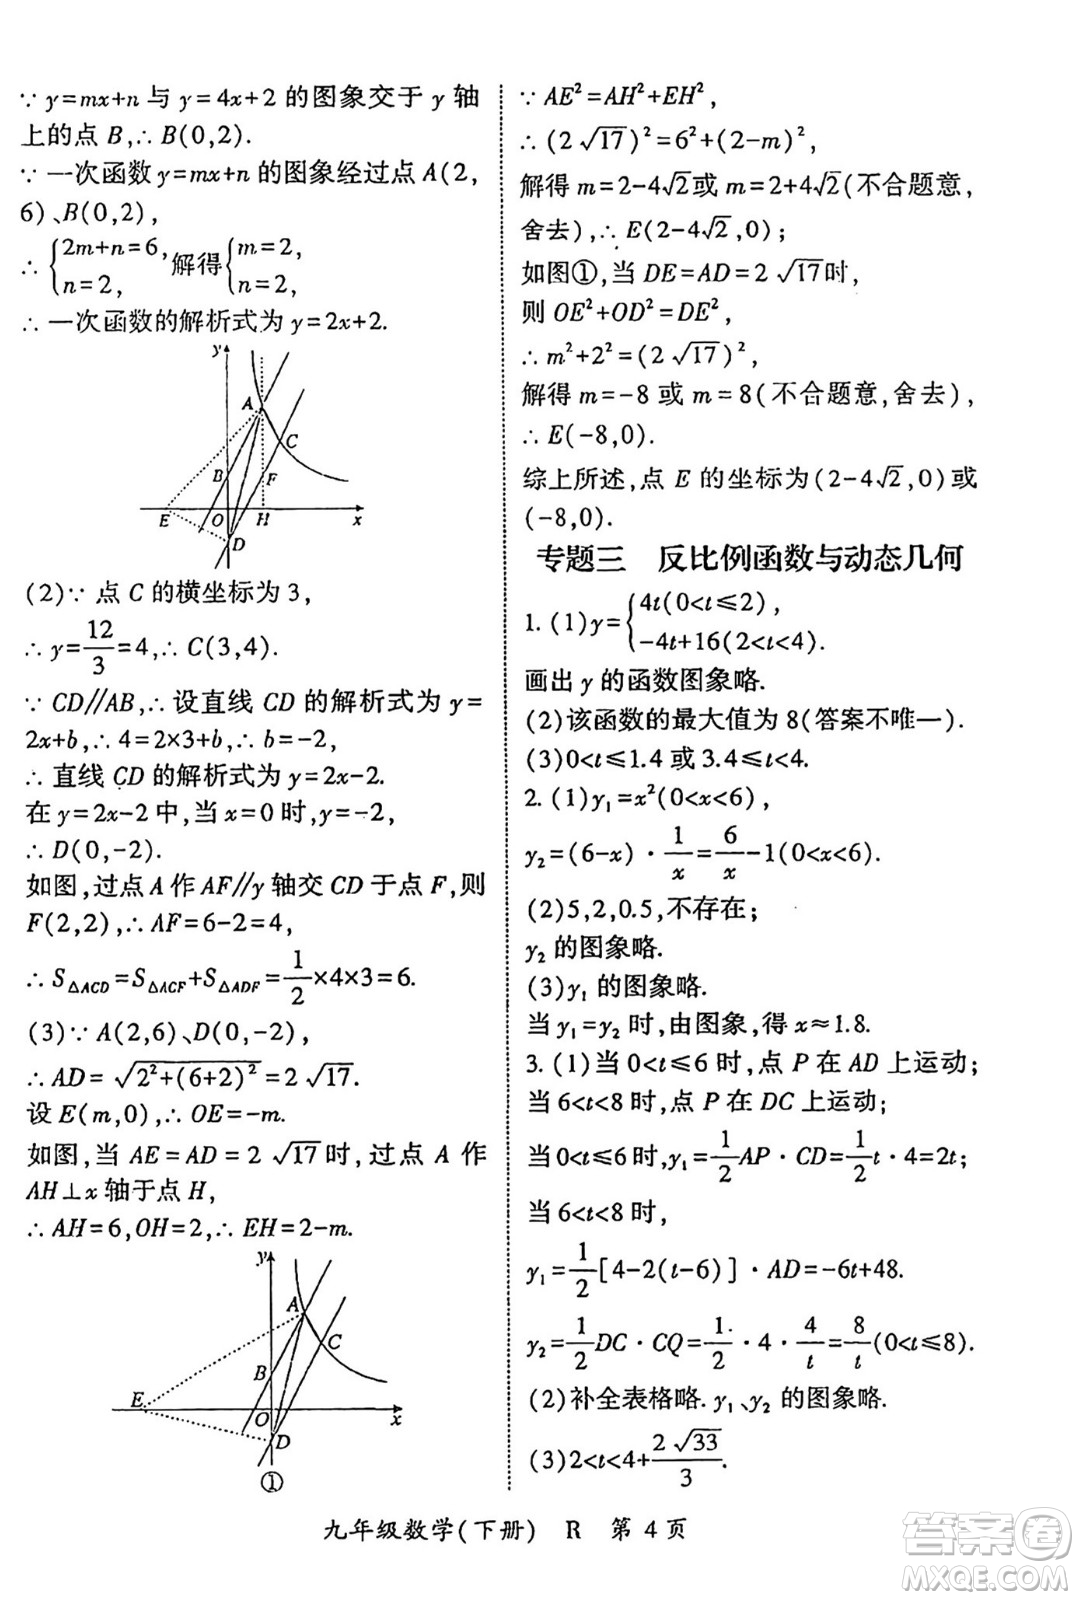 ∵ y=mx+n 与 y=4x+2 的图象交于 y 轴
上的点 B,∴ B(0,2).
∵ 一次函数 y=mx+n 的图象经过点 A(2,
6)、B(0,2),
∴ {2m+n=6, n=2, 解得 {m=2, n=2,
∴ 一次函数的解析式为 y=2x+2.
y
A
C
B
F
E
O
H
x
D
(2)∵ 点 C 的横坐标为 3,
∴ y=12/3=4,∴ C(3,4).
∵ CD∥AB,∴ 设直线 CD 的解析式为 y=
2x+b,∴ 4=2×3+b,∴ b=-2,
∴ 直线 CD 的解析式为 y=2x-2.
在 y=2x-2 中,当 x=0 时,y=-2,
∴ D(0,-2).
如图,过点 A 作 AF∥y 轴交 CD 于点 F,则
F(2,2),∴ AF=6-2=4,
∴ S△ACD=S△ACF+S△ADF=1/2×4×3=6.
(3)∵ A(2,6)、D(0,-2),
∴ AD=√(2²+(6+2)²)=2√17.
设 E(m,0),∴ OE=-m.
如图,当 AE=AD=2√17时,过点 A 作
AH⊥x 轴于点 H,
∴ AH=6,OH=2,∴ EH=2-m.
y
A
C
B
E
O
x
D
①
∵ AE²=AH²+EH²,
∴ (2√17)²=6²+(2-m)²,
解得 m=2-4√2或 m=2+4√2(不合题意,
舍去),∴ E(2-4√2,0);
如图①,当 DE=AD=2√17时,
则 OE²+OD²=DE²,
∴ m²+2²=(2√17)²,
解得 m=-8 或 m=8(不合题意,舍去),
∴ E(-8,0).
综上所述,点 E 的坐标为(2-4√2,0)或
(-8,0).
专题三 反比例函数与动态几何
1. (1)y={4t(0<t≤2), -4t+16(2<t<4).
画出 y 的函数图象略.
(2)该函数的最大值为 8(答案不唯一).
(3)0<t≤1.4 或 3.4≤t<4.
2. (1)y₁=x²(0<x<6),
y₂=(6-x)·1/x=6/x-1(0<x<6).
(2)5,2,0.5,不存在;
y₂ 的图象略.
(3)y₁ 的图象略.
当 y₁=y₂ 时,由图象,得 x≈1.8.
3. (1)当 0<t≤6 时,点 P 在 AD 上运动;
当 6<t<8 时,点 P 在 DC 上运动;
当 0<t≤6 时,y₁=1/2AP·CD=1/2t·4=2t;
当 6<t<8 时,
y₁=1/2[4-2(t-6)]·AD=-6t+48.
y₂=1/2DC·CQ=1/2·4·4/t=8/t(0<t≤8).
(2)补全表格略. y₁、y₂ 的图象略.
(3)2<t<4+2√33/3.
九年级数学(下册) R 第 4 页
答案圈
MXQE.COM